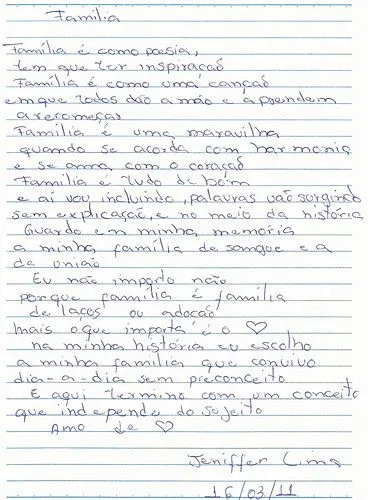 Família
Família é como poesia,
tem que ter inspiração
Família é como uma canção
em que todos dão a mão e aprendem
a recomeçar
Família é uma maravilha
quando se acorda com harmonia
e se ama com o coração
Família é tudo de bom
e ai vou incluindo, palavras vão surgindo
sem explicação, e no meio da história
Guardo en minha memória
a minha família de sangue e a
de união
Eu não importo não
porque família é família
de laços ou adoção
mais o que importa é o ♡
na minha história eu escolho
a minha família que convivo
dia-a-dia sem preconceito
E aqui termino com um conceito
que independe do sujeito
Amo de ♡
Jeniffer Lima
16/03/11